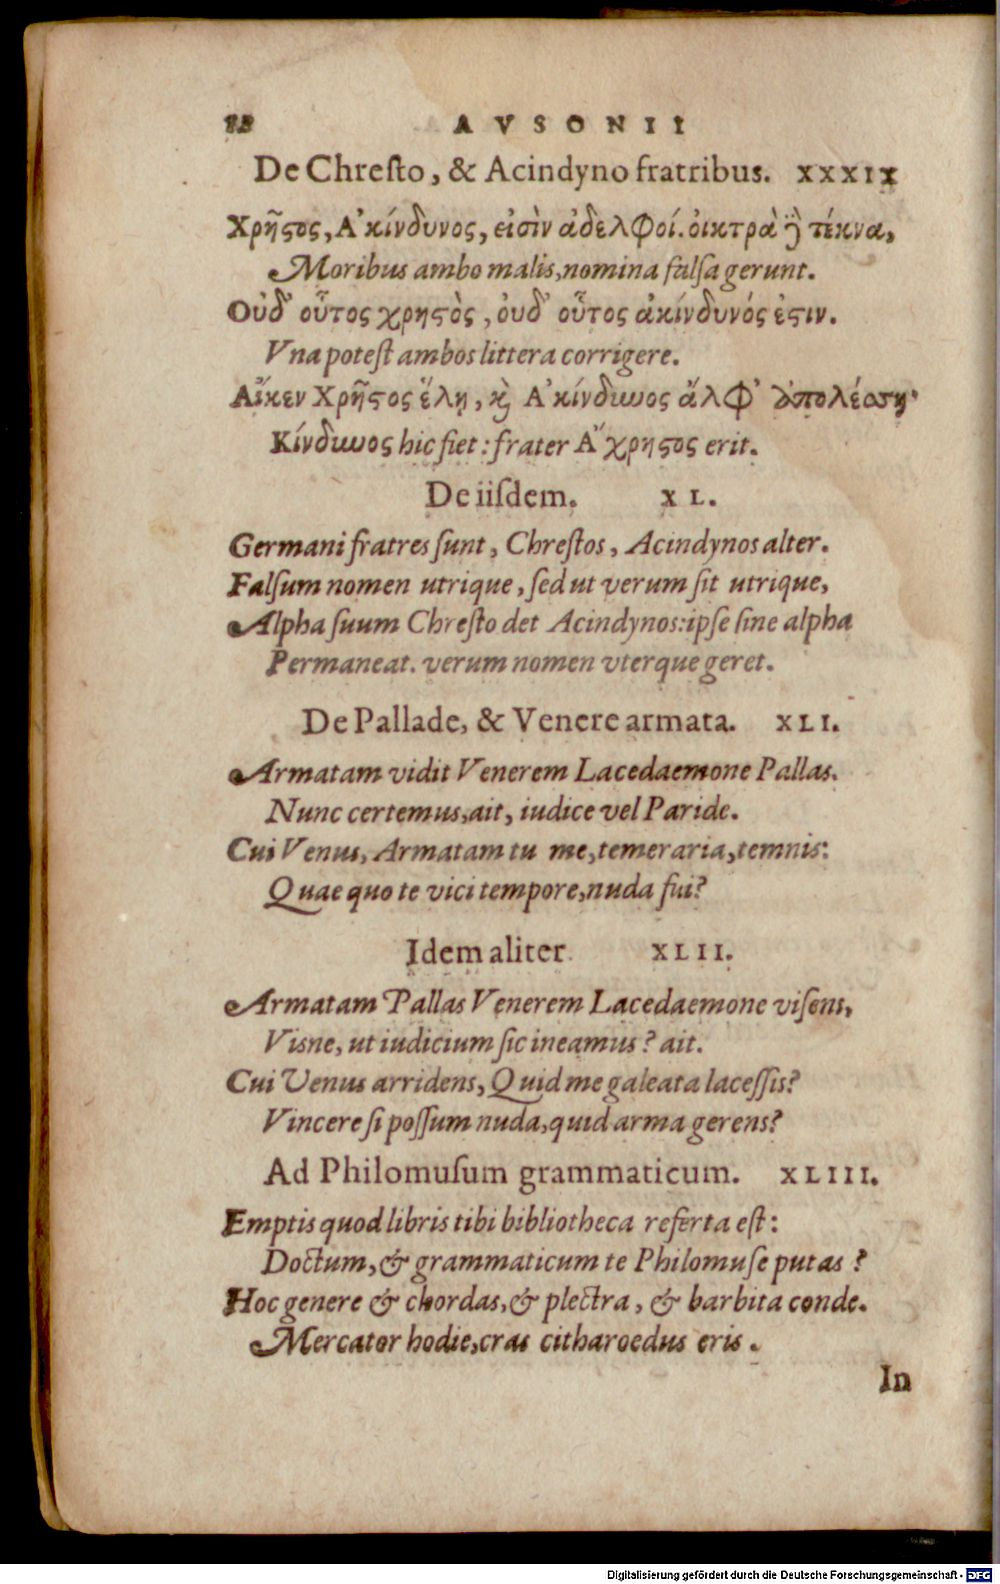 AVSONII
De Chreſto, & Acindyno fratribus. XXXIX
Χρῆϛος, Ἀκίνδυνος, εἰσὶν ἀδελφοί. οἰκτρὰ ϳ̀ τέκνα,
Moribus ambo malis, nomina falſa gerunt.
Οὐδ' οὗτος χρηϛὸς, ὀυδ' οὗτος ἀκίνδυνός ἐϛιν.
Vna poteſt ambos littera corrigere.
Αἴκεν Χρῆϛος ἕλῃ, ϗ̀ Ἀκίνδυνος ἄλφ' ἀπολέσῃ·
Κίνδυνος hic fiet: frater Ἄχρηϛος erit.
De iiſdem. XL.
Germani fratres ſunt, Chreſtos, Acindynos alter.
Falſum nomen utrique, ſed ut verum ſit utrique,
Alpha ſuum Chreſto det Acindynos: ipſe ſine alpha
Permaneat. verum nomen vterque geret.
De Pallade, & Venere armata. XLI.
Armatam vidit Venerem Lacedaemone Pallas.
Nunc certemus, ait, iudice vel Paride.
Cui Venus, Armatam tu me, temeraria, temnis:
Quae quo te vici tempore, nuda fui?
Idem aliter. XLII.
Armatam Pallas Venerem Lacedaemone viſens,
Visne, ut iudicium ſic ineamus? ait.
Cui Venus arridens, Quid me galeata laceſſis?
Vincere ſi poſſum nuda, quid arma gerens?
Ad Philomuſum grammaticum. XLIII.
Emptis quod libris tibi bibliotheca referta eſt:
Doctum, & grammaticum te Philomuſe putas?
Hoc genere & chordas, & plectra, & barbita conde.
Mercator hodie, cras citharoedus eris.
In
Digitalisierung gefördert durch die Deutsche Forschungsgemeinschaft - DFG